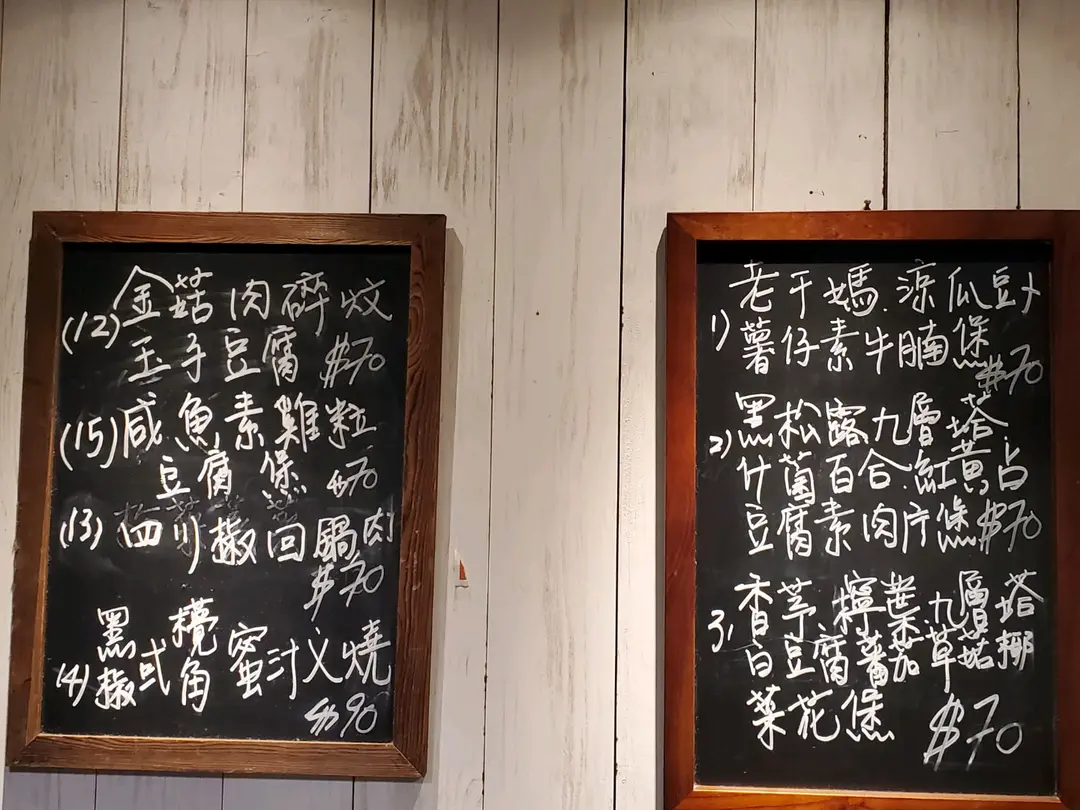 (12) 金菇肉碎炆
玉子豆腐 $70
(15) 咸魚素雞粒
豆腐煲 $70
(13) 四川椒回鍋肉
$70
(14) 黑椒或欖角蜜汁义燒
$90
1) 老干媽.涼瓜豆卜
薯仔素牛腩煲
$70
2) 黑松露九層塔
什菌百合.紅黃占
豆腐素肉片煲 $70
3, 香芋.檸葉.九層塔
白豆腐蕃茄草菇椰
菜花煲 $70